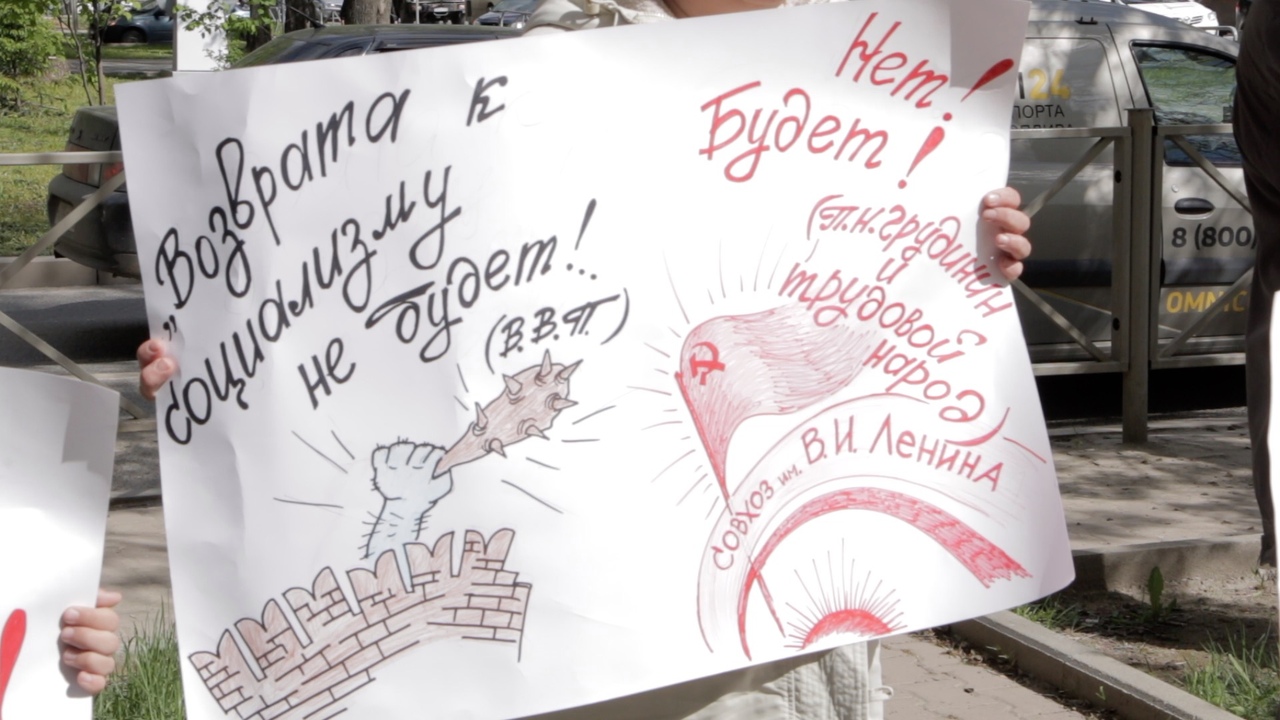 „Возврата к
социализму
не будет!..
(В.В.П.)
Нет!
Будет!
(П.Н. Грудинин
и
трудовой
народ)
СОВХОЗ им. В.И. Ленина
24
ПОРТА
8 (800)